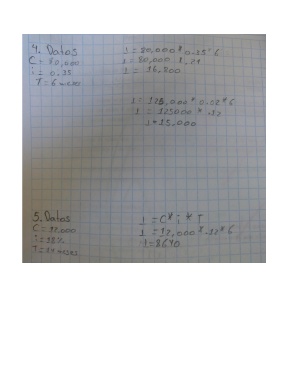 4. Datos
C = 80,000
i = 0,35
T = 6 meses
1 = 80,000 * 0.35 * 6
1 = 80,000 * .21
1 = 16,800
1 = 125,000 * 0.02 * 6
1 = 125000 * .12
1 = 15,000
5. Datos
C = 12,000
i = 12%
1 = C * i * T
1 = 12,000 * .12 * 6
1 = 8640